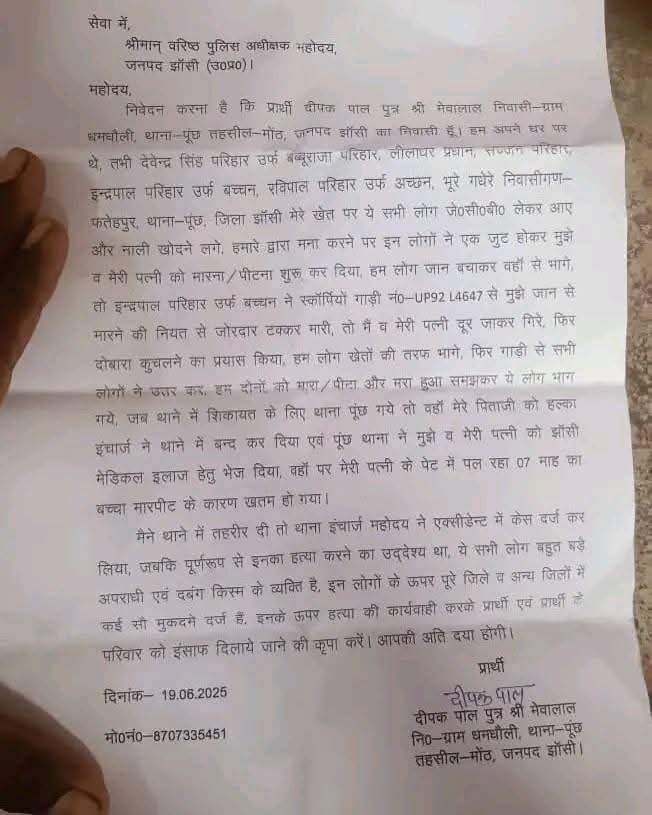 सेवा में,
श्रीमान् वरिष्ठ पुलिस अधीक्षक महोदय,
जनपद झाँसी (उ0प्र0)।
महोदय,
निवेदन करना है कि प्रार्थी दीपक पाल पुत्र श्री मेवालाल निवासी–ग्राम
धमधौली, थाना–पूंछ तहसील–मोंठ, जनपद झाँसी का निवासी हूँ। हम अपने घर पर
थे, तभी देवेन्द्र सिंह परिहार उर्फ बब्बूराजा परिहार, लीलाधर प्रधान, सज्जन परिहार,
इन्द्रपाल परिहार उर्फ बच्चन, रविपाल परिहार उर्फ अच्छन, भूरे गधेरे निवासीगण–
फतेहपुर, थाना–पूंछ, जिला झाँसी मेरे खेत पर ये सभी लोग जे0सी0बी0 लेकर आए
और नाली खोदने लगे, हमारे द्वारा मना करने पर इन लोगों ने एक जुट होकर मुझे
व मेरी पत्नी को मारना/पीटना शुरू कर दिया, हम लोग जान बचाकर वहाँ से भागे,
तो इन्द्रपाल परिहार उर्फ बच्चन ने स्कॉर्पियों गाड़ी नं0–UP92 L4647 से मुझे जान से
मारने की नियत से जोरदार टक्कर मारी, तो मैं व मेरी पत्नी दूर जाकर गिरे, फिर
दोबारा कुचलने का प्रयास किया, हम लोग खेतों की तरफ भागे, फिर गाडी से सभी
लोगों ने उतर कर, हम दोनों को मारा/पीटा और मरा हुआ समझकर ये लोग भाग
गये, जब थाने में शिकायत के लिए थाना पूंछ गये तो वहाँ मेरे पिताजी को हल्का
इंचार्ज ने थाने में बन्द कर दिया एवं पूंछ थाना ने मुझे व मेरी पत्नी को झाँसी
मेडिकल इलाज हेतु भेज दिया, वहाँ पर मेरी पत्नी के पेट में पल रहा 07 माह का
बच्चा मारपीट के कारण खतम हो गया।
मैने थाने में तहरीर दी तो थाना इंचार्ज महोदय ने एक्सीडेन्ट में केस दर्ज कर
लिया, जबकि पूर्णरूप से इनका हत्या करने का उद्देश्य था, ये सभी लोग बहुत बड़े
अपराधी एवं दबंग किस्म के व्यक्ति है, इन लोगों के ऊपर पूरे जिले व अन्य जिलों में
कई सौ मुकदमे दर्ज हैं, इनके ऊपर हत्या की कार्यवाही करके प्रार्थी एवं प्रार्थी के
परिवार को इंसाफ दिलाये जाने की कृपा करें। आपकी अति दया होगी।
प्रार्थी
दिनांक– 19.06.2025
दीपक पाल
दीपक पाल पुत्र श्री मेवालाल
मो0नं0–8707335451
नि0–ग्राम धमधौली, थाना–पूंछ
तहसील–मोंठ, जनपद झाँसी।